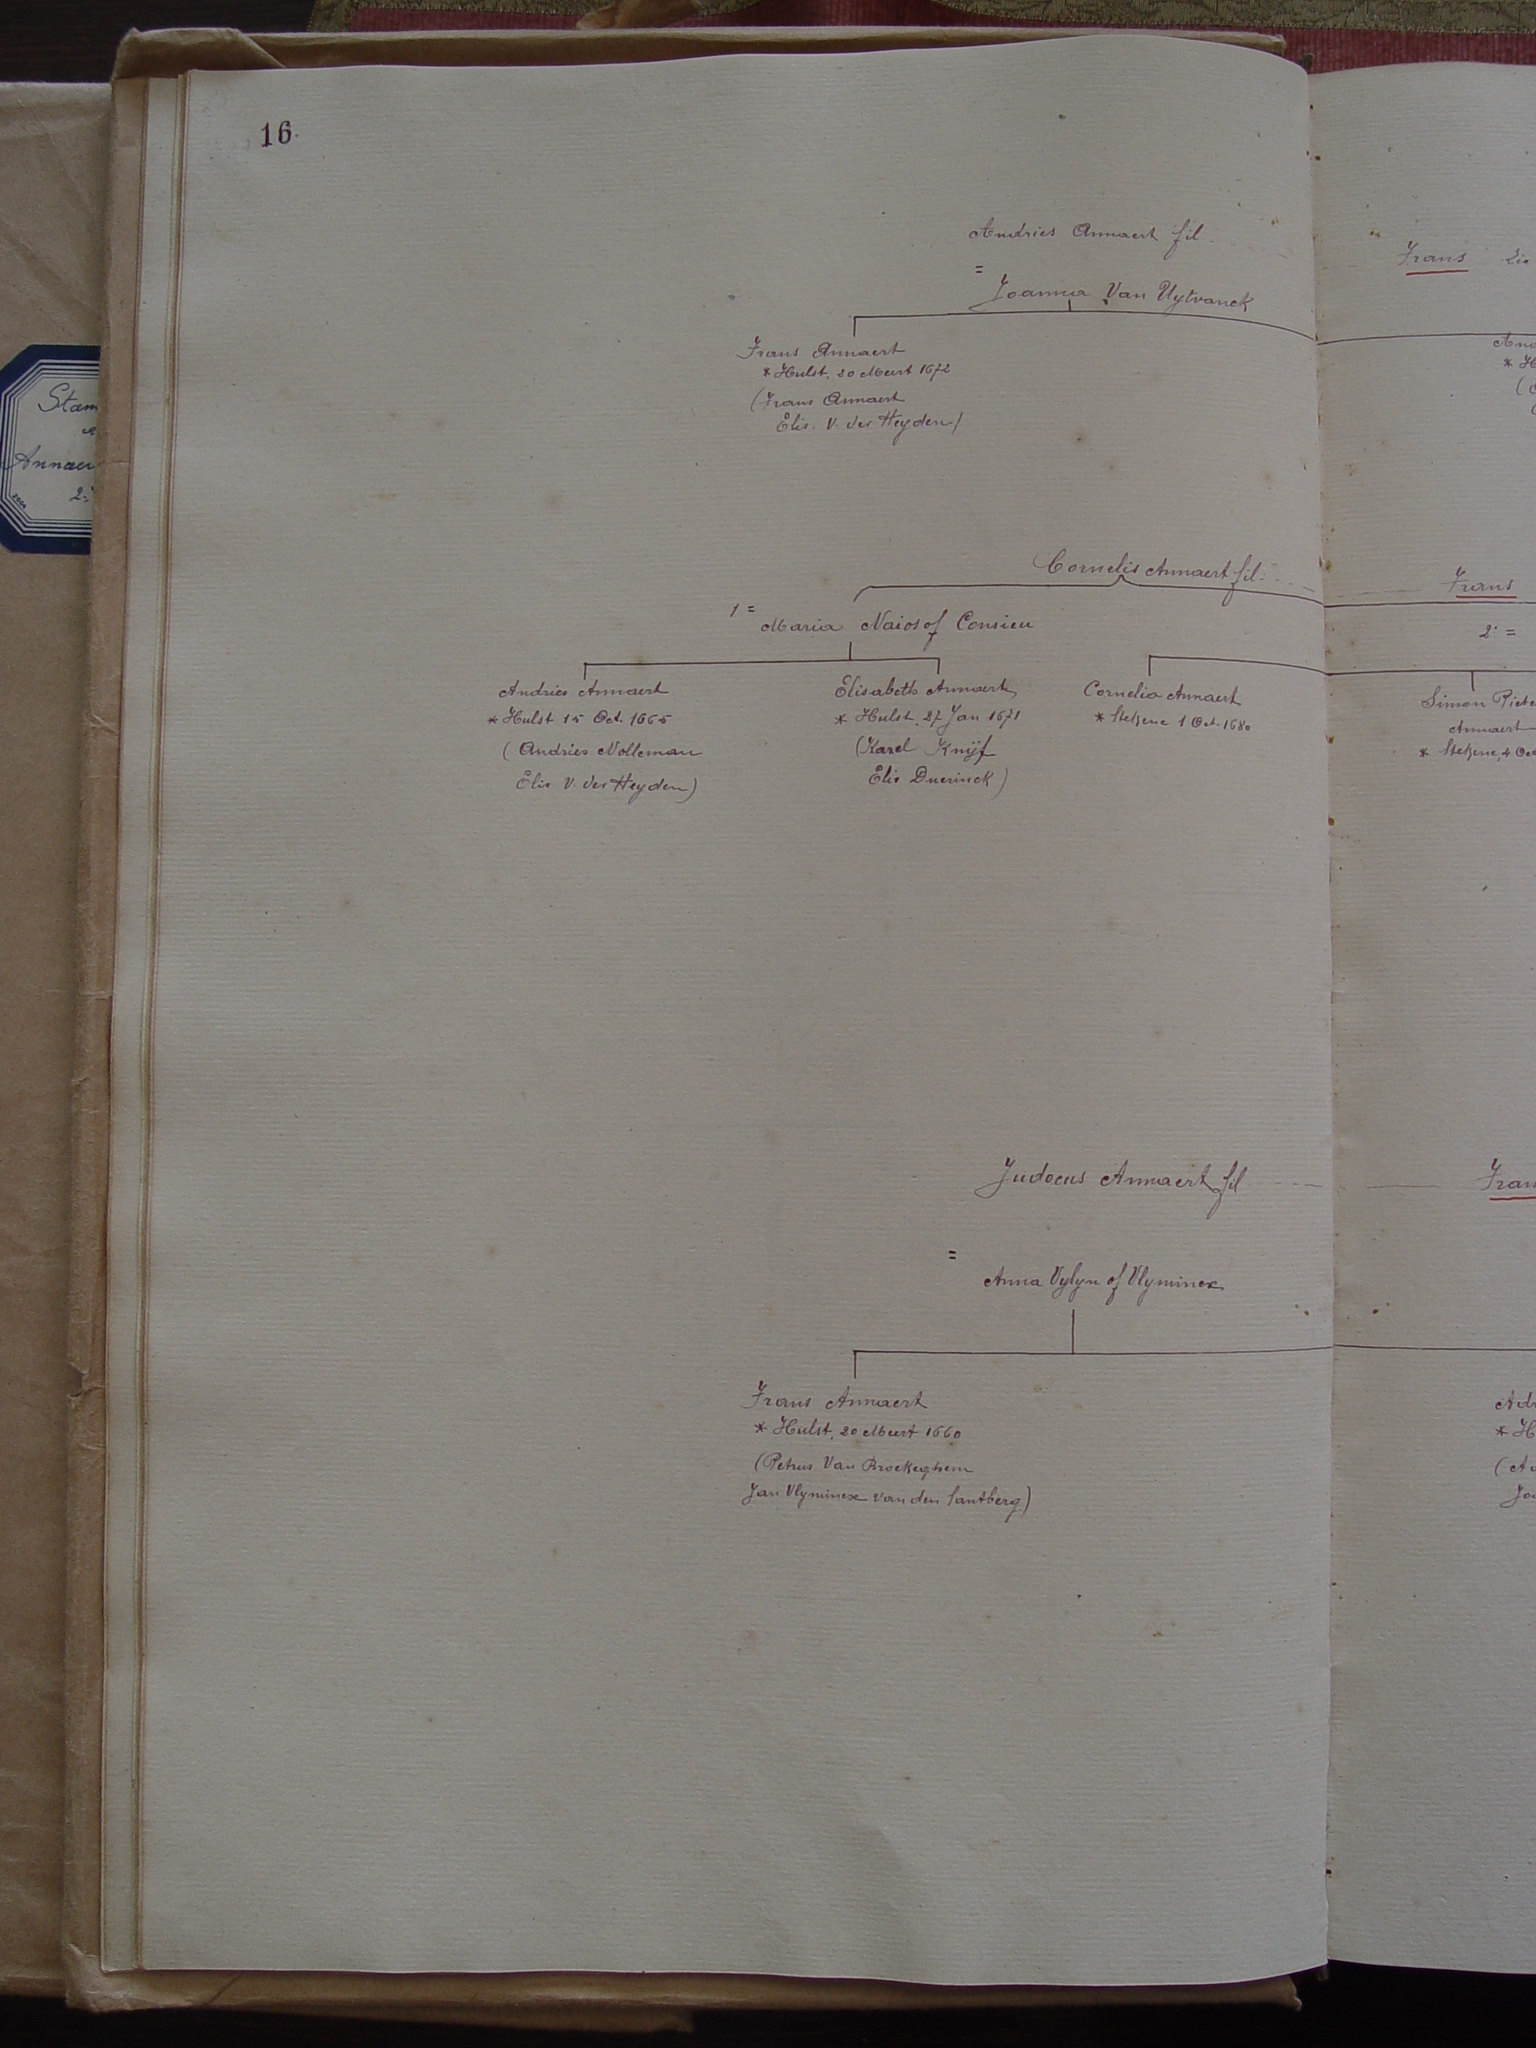 16.
Andries Annaert fil
Frans
=
Joanna Van Uytvanck
Frans Annaert
* Hulst, 20 Meert 1672
(Frans Annaert
Elis. V. der Heyden)
Stam
Annaer
Cornelis Annaert fil.
Frans
1 =
Maria Naios of Consieu
2. =
Andries Annaert
* Hulst 15 Oct. 1665
(Andries Nolleman
Elis V. der Heyden)
Elisabeth Annaert
* Hulst, 27 Jan 1671
(Karel Knijf
Elis Duerinck)
Cornelia Annaert
* Stekene 1 Oct. 1680
Simon Piete
Annaert
* Stekene, 4 Oc
Judocus Annaert fil
Fran
=
Anna Vylyn of Vlyminex
Frans Annaert
* Hulst, 20 Meert 1660
(Petrus Van Broekeghem
Jan Vlyminex van den Santberg)